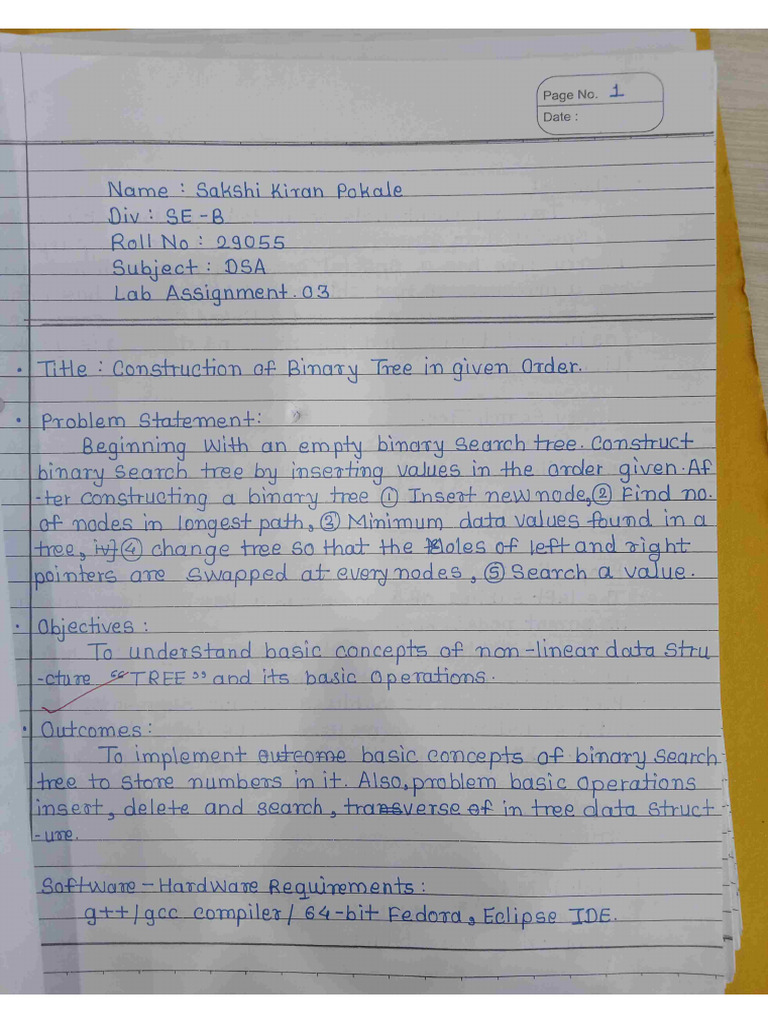 Page No. 1
Date :
Name : Sakshi Kiran Pokale
Div : SE-B
Roll No : 29055
Subject : DSA
Lab Assignment. 03
• Title : Construction of Binary Tree in given Order.
• Problem Statement :
Beginning with an empty binary search tree. Construct
binary search tree by inserting values in the order given. Af
-ter constructing a binary tree ① Insert new node, ② Find no.
of nodes in longest path, ③ Minimum data values found in a
tree, iv) ④ change tree so that the Roles of left and right
pointers are swapped at every nodes, ⑤ Search a value.
• Objectives :
To understand basic concepts of non-linear data stru
-cture “TREE” and its basic operations.
• Outcomes :
To implement outcome basic concepts of binary search
tree to store numbers in it. Also, problem basic operations
insert, delete and search, transverse of in tree data struct
-ure.
Software - Hardware Requirements :
g++/gcc compiler / 64-bit Fedora, Eclipse IDE.